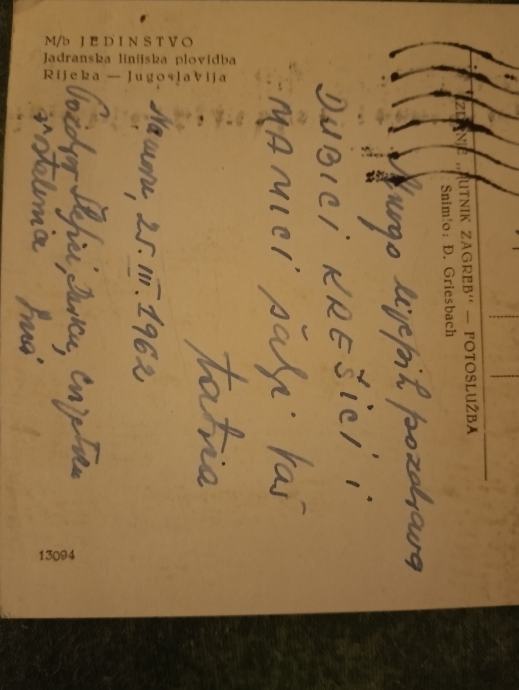 M/b JEDINSTVO
Jadranska linijska plovidba
Rijeka — Jugoslavija
Mnogo lijepih pozdrava
DUBICI KREŠICI i
MAMICI šalje Vaš
tatica
25. III. 1962
Pozdrav
i ostalima
13094
IZDANJE „PUTNIK ZAGREB“ — FOTOSLUŽBA
Snimio: Đ. Griesbach